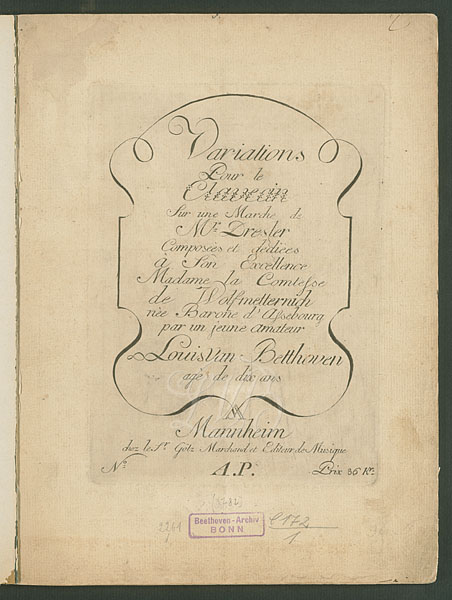 Variations
Pour le
Clavecin
Sur une Marche de
Mr. Dresler
Composées et dediées
à Son Excellence
Madame la Comtesse
de Wolfmetternich
née Baronne d'Assebourg
par un jeune amateur
Louis van Betthoven
agé de dix ans
Mannheim
chez le Sr. Götz Marchand et Editeur de Musique
No. A.P. Prix 36 Kr.
(1782)
2261
Beethoven-Archiv
BONN
C 172
1